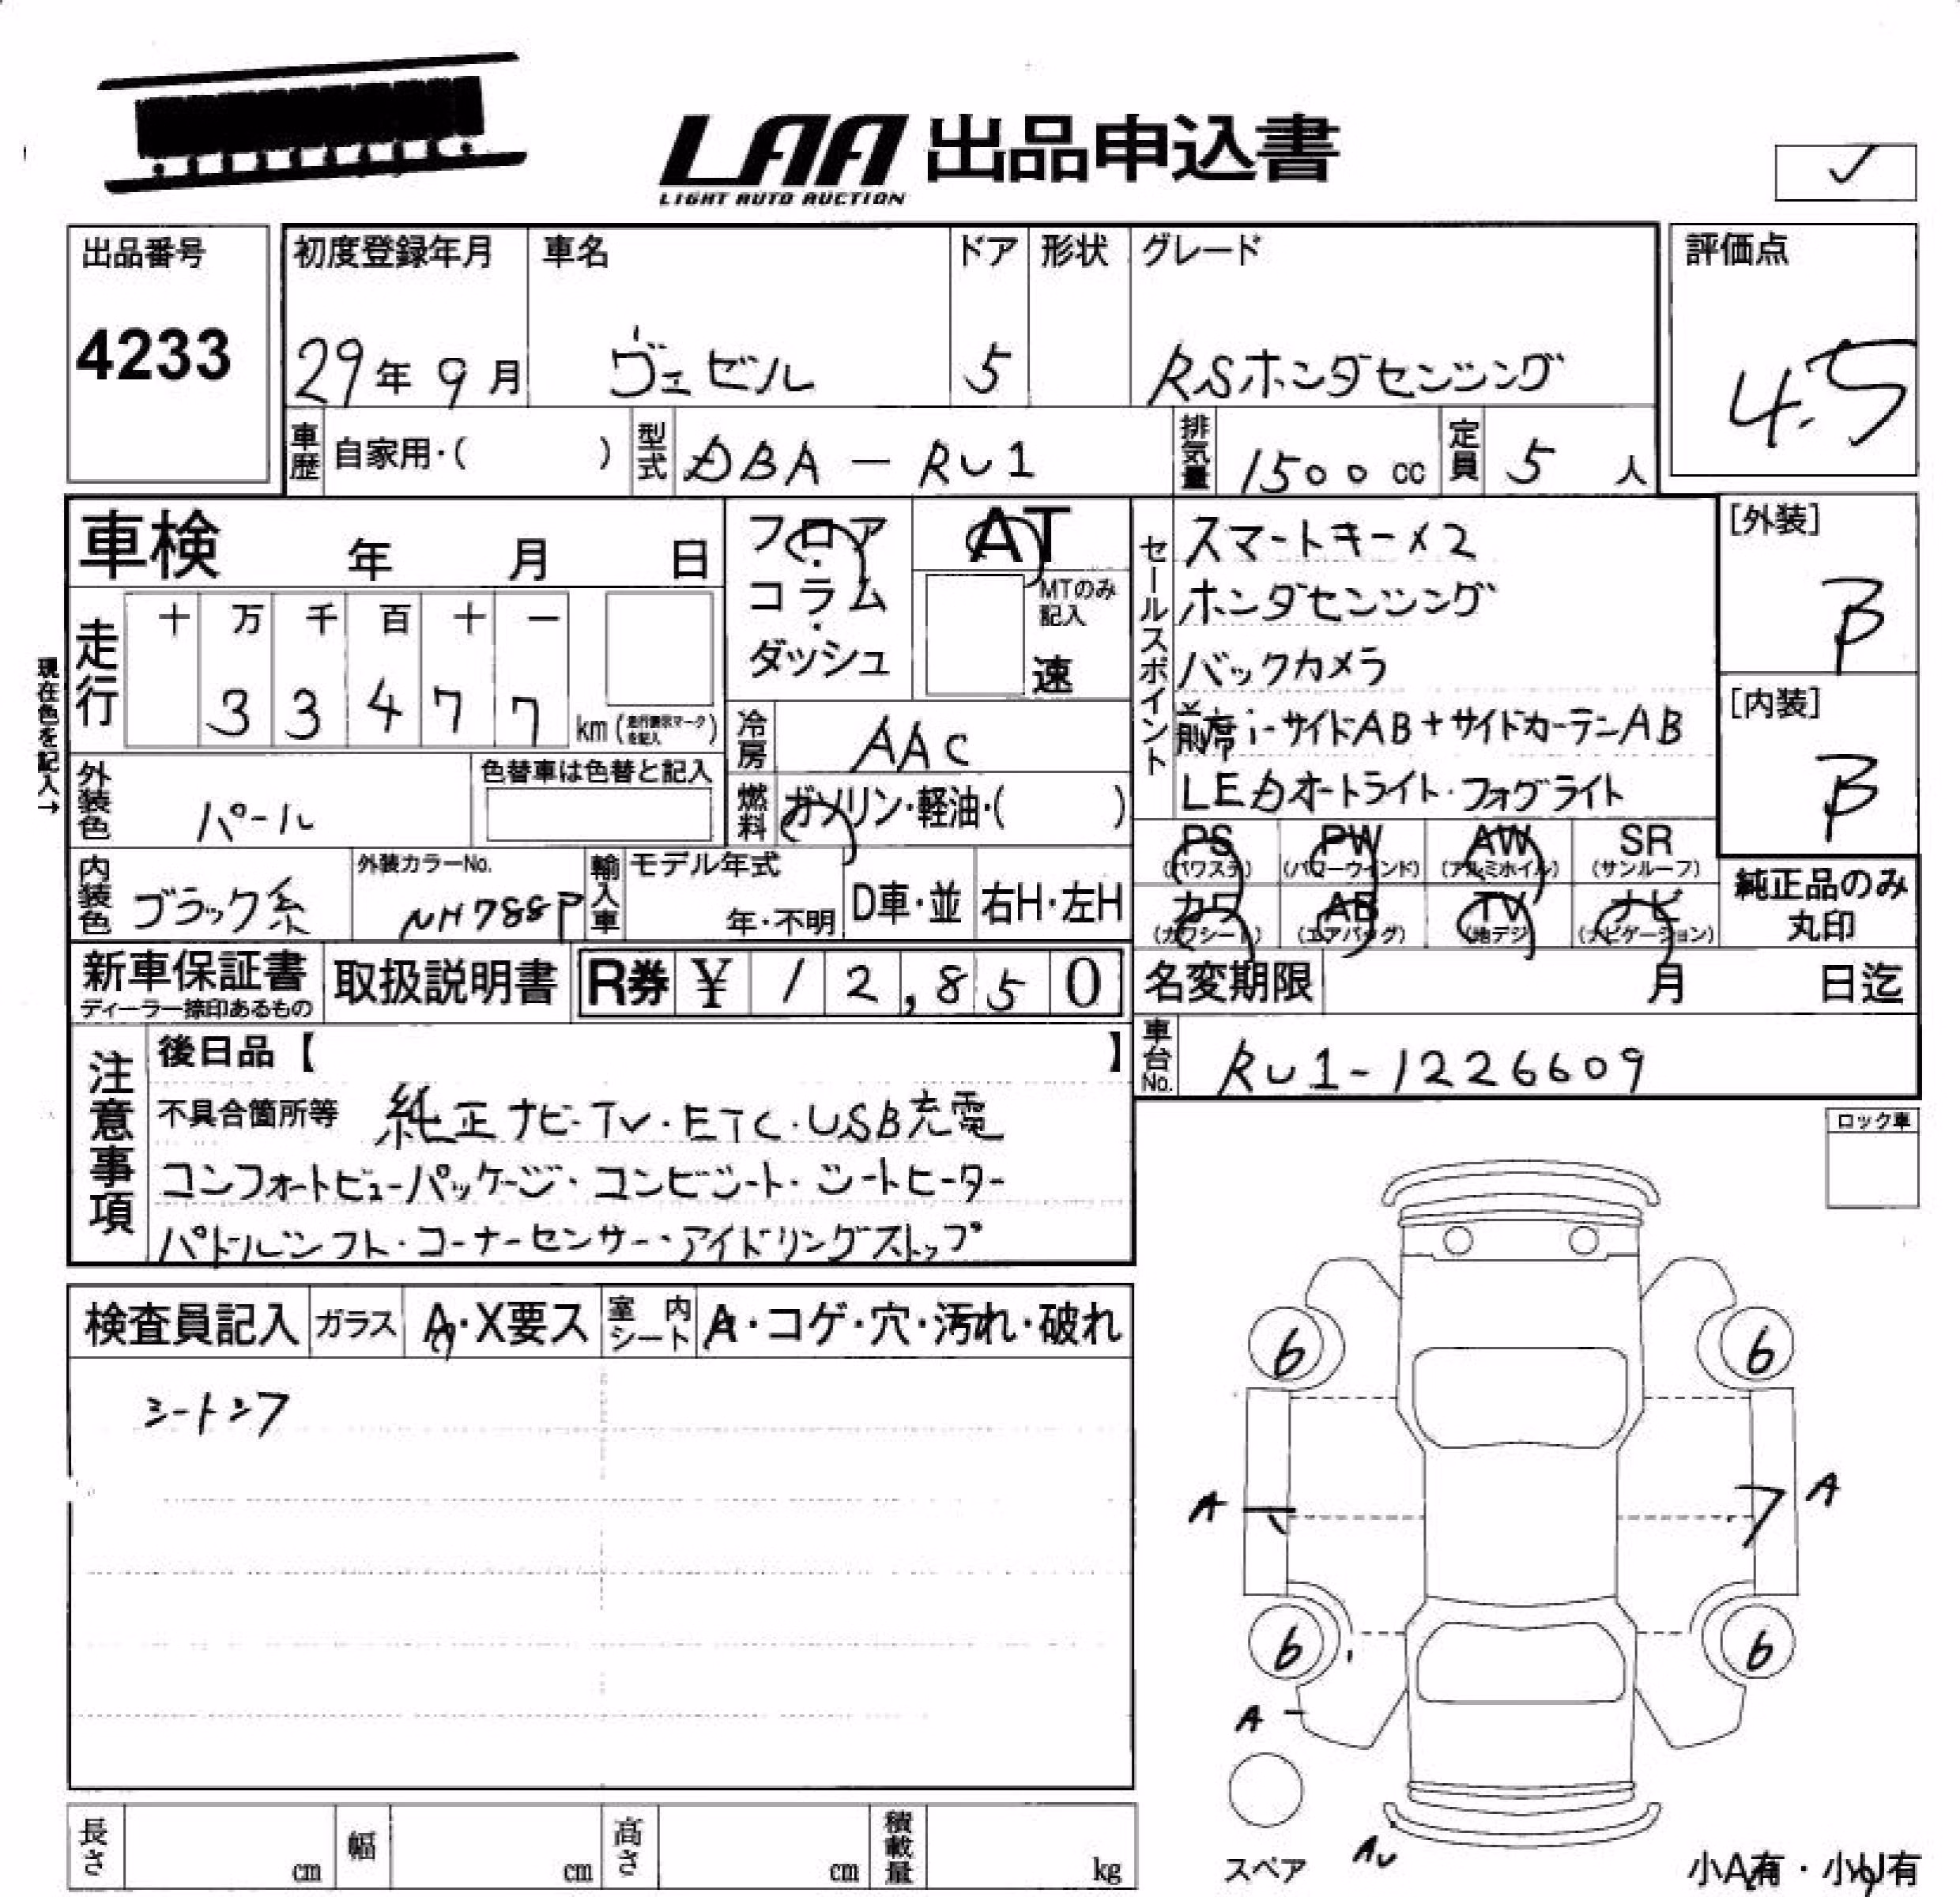 LAA 出品申込書
LIGHT AUTO AUCTION
✓
出品番号
4233
初度登録年月
29年 9月
車名
ヴェゼル
ドア
5
形状
グレード
RSホンダセンシング
評価点
4.5
車歴 自家用・( )
型式 DBA-RU1
排気量 1500 cc
定員 5 人
車検 年 月 日
フロア・コラム・ダッシュ
AT
MTのみ記入
速
セールスポイント
スマートキー×2
ホンダセンシング
バックカメラ
前席i-サイドAB+サイドカーテンAB
LEDオートライト・フォグライト
[外装]
B
[内装]
B
現在色を記入→
走行
十 万 千 百 十 一
3 3 4 7 7
km (走行表示マークを記入)
冷房 AAC
燃料 ガソリン・軽油・( )
外装色 パール
色替車は色替と記入
内装色 ブラック系
外装カラーNo.
NH788P
輸入車
モデル年式
年・不明
D車・並
右H・左H
PS (パワステ)
PW (パワーウインド)
AW (アルミホイル)
SR (サンルーフ)
カワ (カワシート)
AB (エアバッグ)
TV (地デジ)
ナビ (ナビゲーション)
純正品のみ
丸印
新車保証書
ディーラー捺印あるもの
取扱説明書
R券 ¥ 12,850
名変期限 月 日迄
車台No. RU1-1226609
注意事項
後日品【 】
不具合箇所等 純正ナビ・TV・ETC・USB充電
コンフォートビューパッケージ・コンビシート・シートヒーター
パドルシフト・コーナーセンサー・アイドリングストップ
ロック車
検査員記入
ガラス A・X要ス
室内シート A・コゲ・穴・汚れ・破れ
シートシワ
6 6
A A
6 6
A
スペア
AU
小A有・小U有
長さ cm
幅 cm
高さ cm
積載量 kg